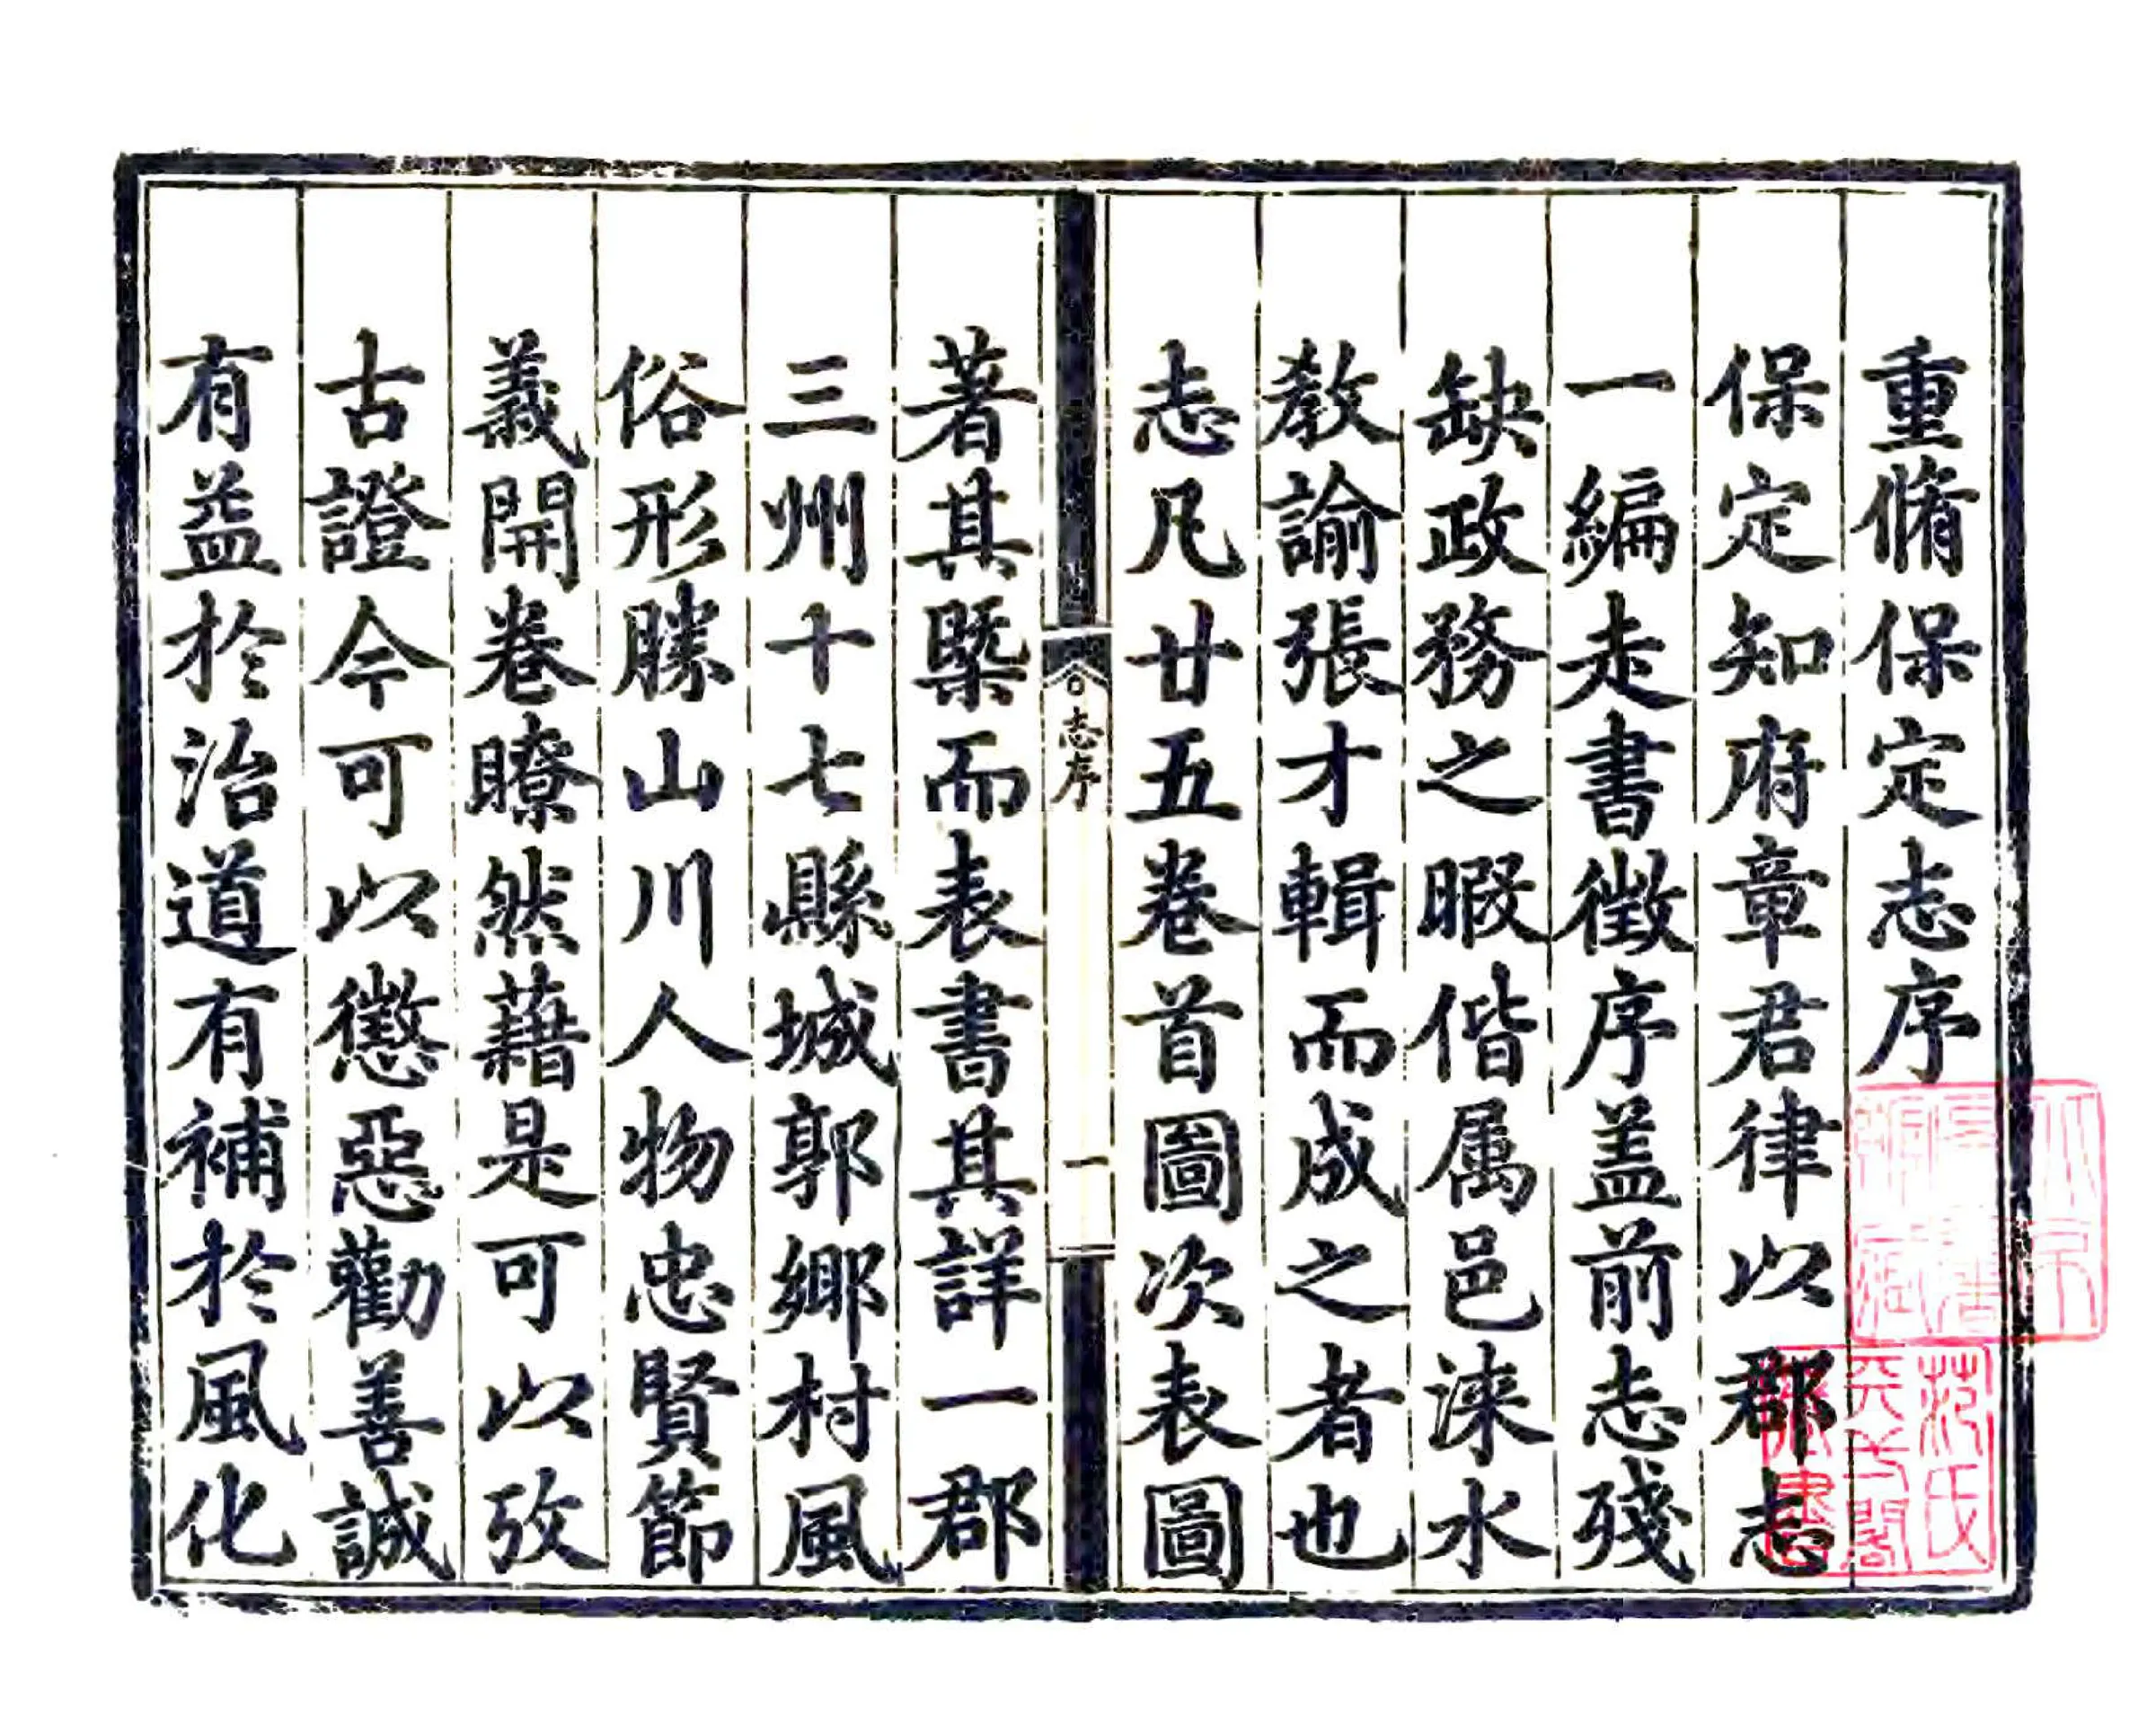 重脩保定志序
保定知府章君律以郡志
一編走書徵序盖前志殘
缺政務之暇偕属邑涞水
教諭張才輯而成之者也
志凡廿五卷首圖次表圖
志序
一
著其槩而表書其詳一郡
三州十七縣城郭鄉村風
俗形勝山川人物忠賢節
義開卷瞭然藉是可以攷
古證今可以懲惡勸善誠
有益於治道有補於風化
范氏
天一閣
藏書